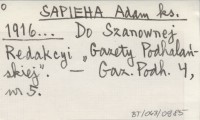 SAPIEHA Adam ks.
1916... Do Szanownej
Redakcyi „Gazety Podhalań-
skiej”. — Gaz. Podh. 4,
nr 5.
BJ/067/0985